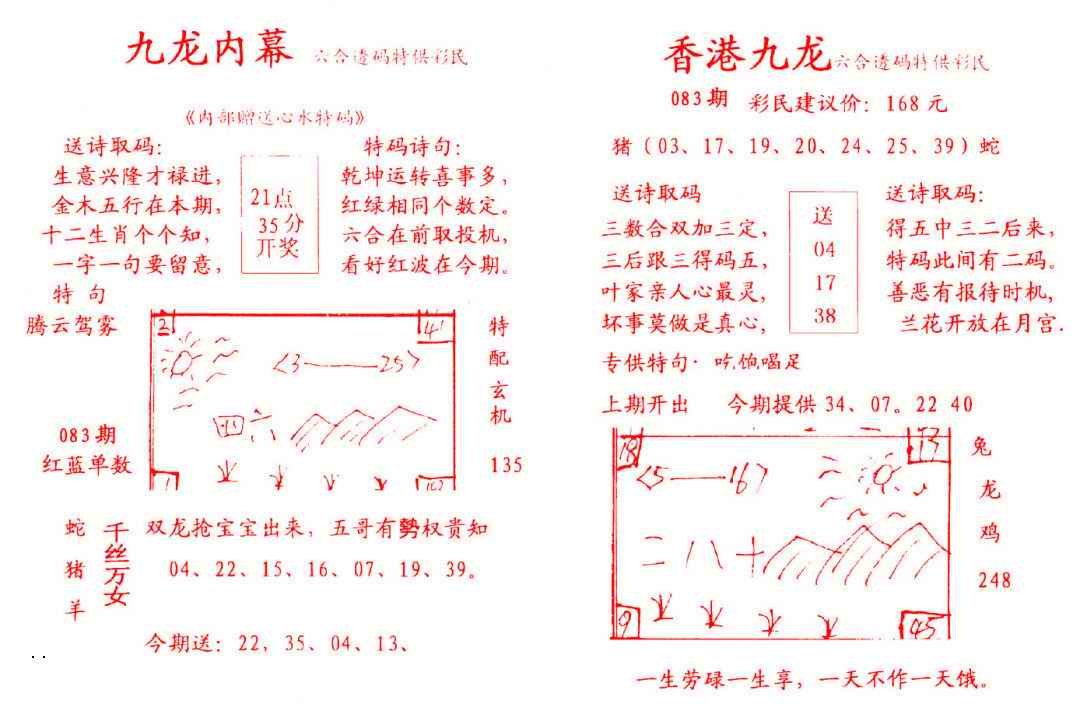 九龙内幕 六合透码特供彩民
《内部赠送心水特码》
送诗取码:
生意兴隆才禄进,
金木五行在本期,
十二生肖个个知,
一字一句要留意,
特 句
腾云驾雾
21点
35分
开奖
特码诗句:
乾坤运转喜事多,
红绿相同个数定。
六合在前取投机,
看好红波在今期。
21
41
〈3——25〉
四六
1
083期
红蓝单数
特配玄机
135
蛇
猪
羊
千丝万女
双龙抢宝宝出来, 五哥有勢权贵知
04、22、15、16、07、19、39。
今期送: 22, 35、04、13、
香港九龙 六合透码特供彩民
083期 彩民建议价: 168元
猪 (03、17、19、20、24、25、39) 蛇
送诗取码
三数合双加三定,
三后跟三得码五,
叶家亲人心最灵,
坏事莫做是真心,
送
04
17
38
送诗取码:
得五中三二后来,
特码此间有二码。
善恶有报待时机,
兰花开放在月宫.
专供特句· 吃饱喝足
上期开出 今期提供 34、07。22 40
18
13
〈5——16〉
二八十
9
45
兔
龙
鸡
248
一生劳碌一生享, 一天不作一天饿。